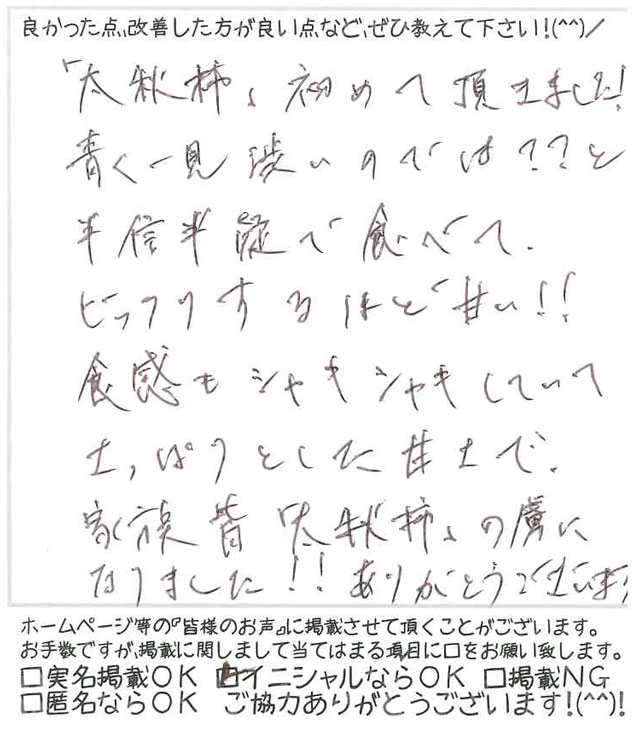 良かった点、改善した方が良い点など、ぜひ教えて下さい!(^^)/
「太秋柿」初めて頂きました!
青く一見渋いのでは??と
半信半疑で食べて、
ビックリするほど甘い!!
食感もシャキシャキしていて
さっぱりとした甘さで、
家族皆「太秋柿」の虜に
なりました!!ありがとうございます
ホームページ等の『皆様のお声』に掲載させて頂くことがございます。
お手数ですが、掲載に関しまして当てはまる項目に口をお願い致します。
□実名掲載OK □イニシャルならOK □掲載NG
□匿名ならOK ご協力ありがとうございます!(^^)!